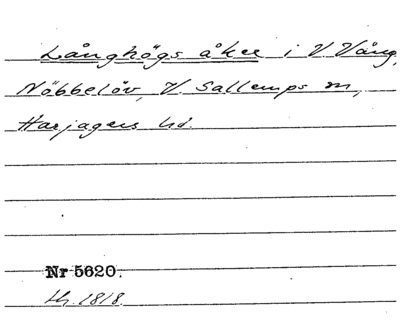 Långhögs åker i V Vång,
Nöbbelöv, V. Sallerups sn,
Harjagers hd.
Nr 5620.
lh. 1818.